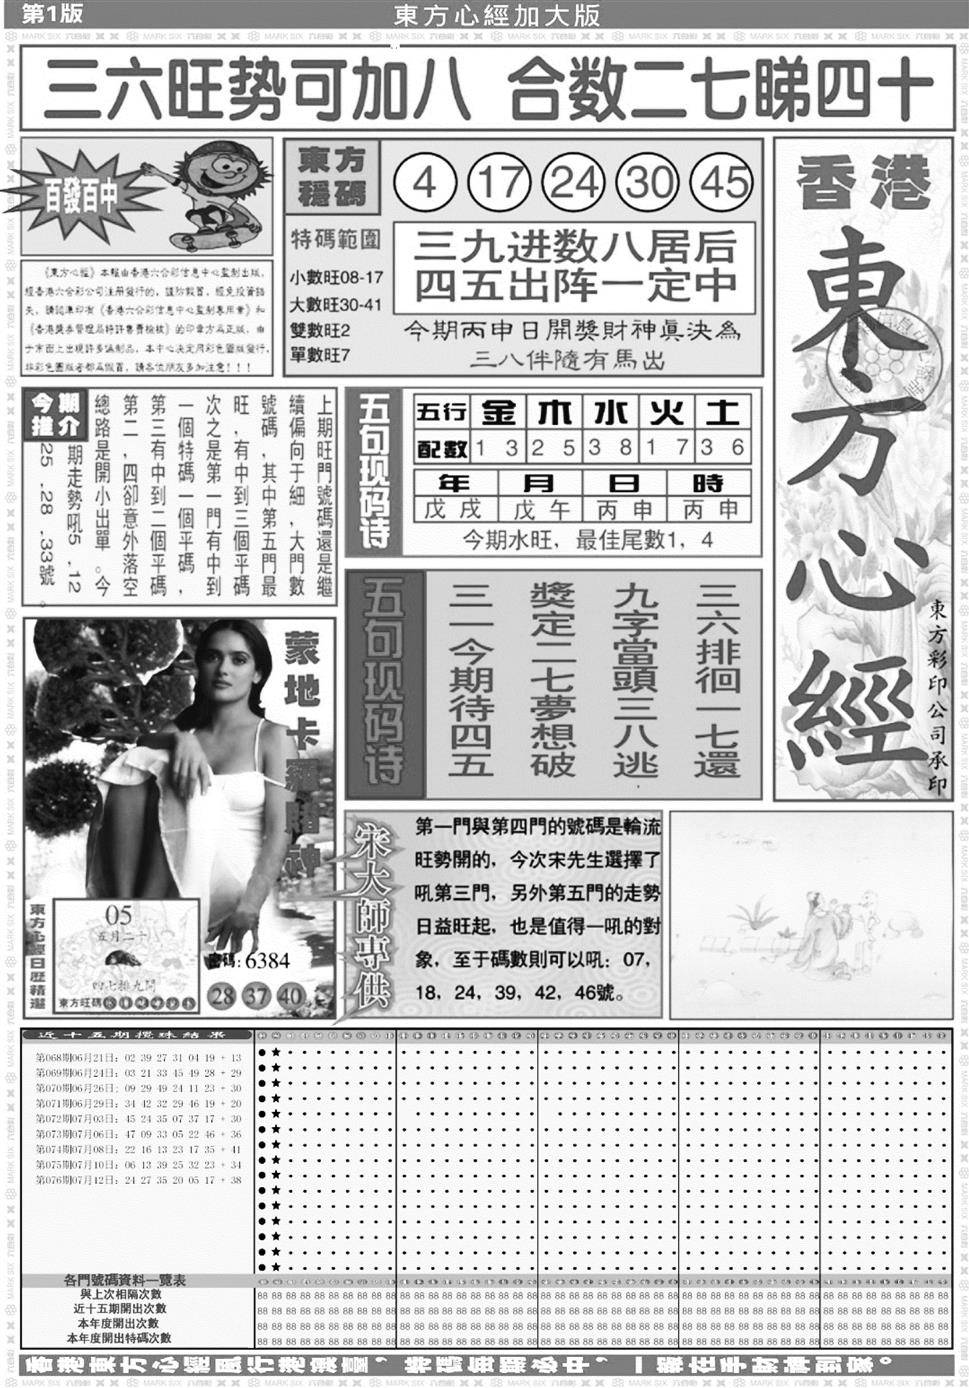 第1版
東方心經加大版
三六旺势可加八 合数二七睇四十
百發百中
《東方心經》本報由香港六合彩信息中心監制出版，
經香港六合彩公司注册發行的，謹防假冒，經免投資錯
失，請認準印有《香港六合彩信息中心監制專用章》和
《香港獎券管理局特許售賣檢核》的印章方爲正版，由
于市面上出現許多諷制品，本中心决定用彩色圖版發行，
非彩色圖版者都爲假冒，請各位朋友多加注意！！！
東方
穩碼
4 17 24 30 45
特碼範圍
小數旺08-17
大數旺30-41
雙數旺2
單數旺7
三九进数八居后
四五出阵一定中
今期丙申日開獎財神眞決為
三八伴隨有馬出
香港
東方心經
東方彩印公司承印
今期
推介
上期旺門號碼還是繼
續偏向于細，大門數
號碼，其中第五門最
旺，有中到三個平碼
次之是第一門有中到
一個特碼一個平碼，
第三有中到二個平碼
第二，四卻意外落空
總路是開小出單。今
期走勢吼5，12
25，28，33號。
五句现码诗
五行 金 木 水 火 土
配數 1 3 2 5 3 8 1 7 3 6
年 月 日 時
戊戌 戊午 丙申 丙申
今期水旺，最佳尾數1，4
五句现码诗
三六排徊一七還
九字當頭三八逃
獎定二七夢想破
三一今期待四五
蒙地卡羅賭神
東方心經日歷精選
05
五月二十
四七排九開
東方旺碼
密碼：6384
28 37 40
宋大師專供
第一門與第四門的號碼是輪流
旺勢開的，今次宋先生選擇了
吼第三門，另外第五門的走勢
日益旺起，也是值得一吼的對
象，至于碼數則可以吼：07，
18，24，39，42，46號。
近十五期攪珠結果
第068期06月21日：02 39 27 31 04 19 + 13
第069期06月24日：03 21 33 45 49 28 + 29
第070期06月26日：09 29 49 24 11 23 + 30
第071期06月29日：34 42 32 29 46 19 + 20
第072期07月03日：45 24 35 07 37 17 + 30
第073期07月06日：47 09 33 05 22 46 + 36
第074期07月08日：22 16 13 23 17 35 + 41
第075期07月10日：06 13 39 25 32 23 + 34
第076期07月12日：24 27 35 20 05 17 + 38
各門號碼資料一覽表
與上次相隔次數
近十五期開出次數
本年度開出次數
本年度開出特碼次數
香港東方心經風行港澳臺，特碼每期必中，一版在手財神到家。